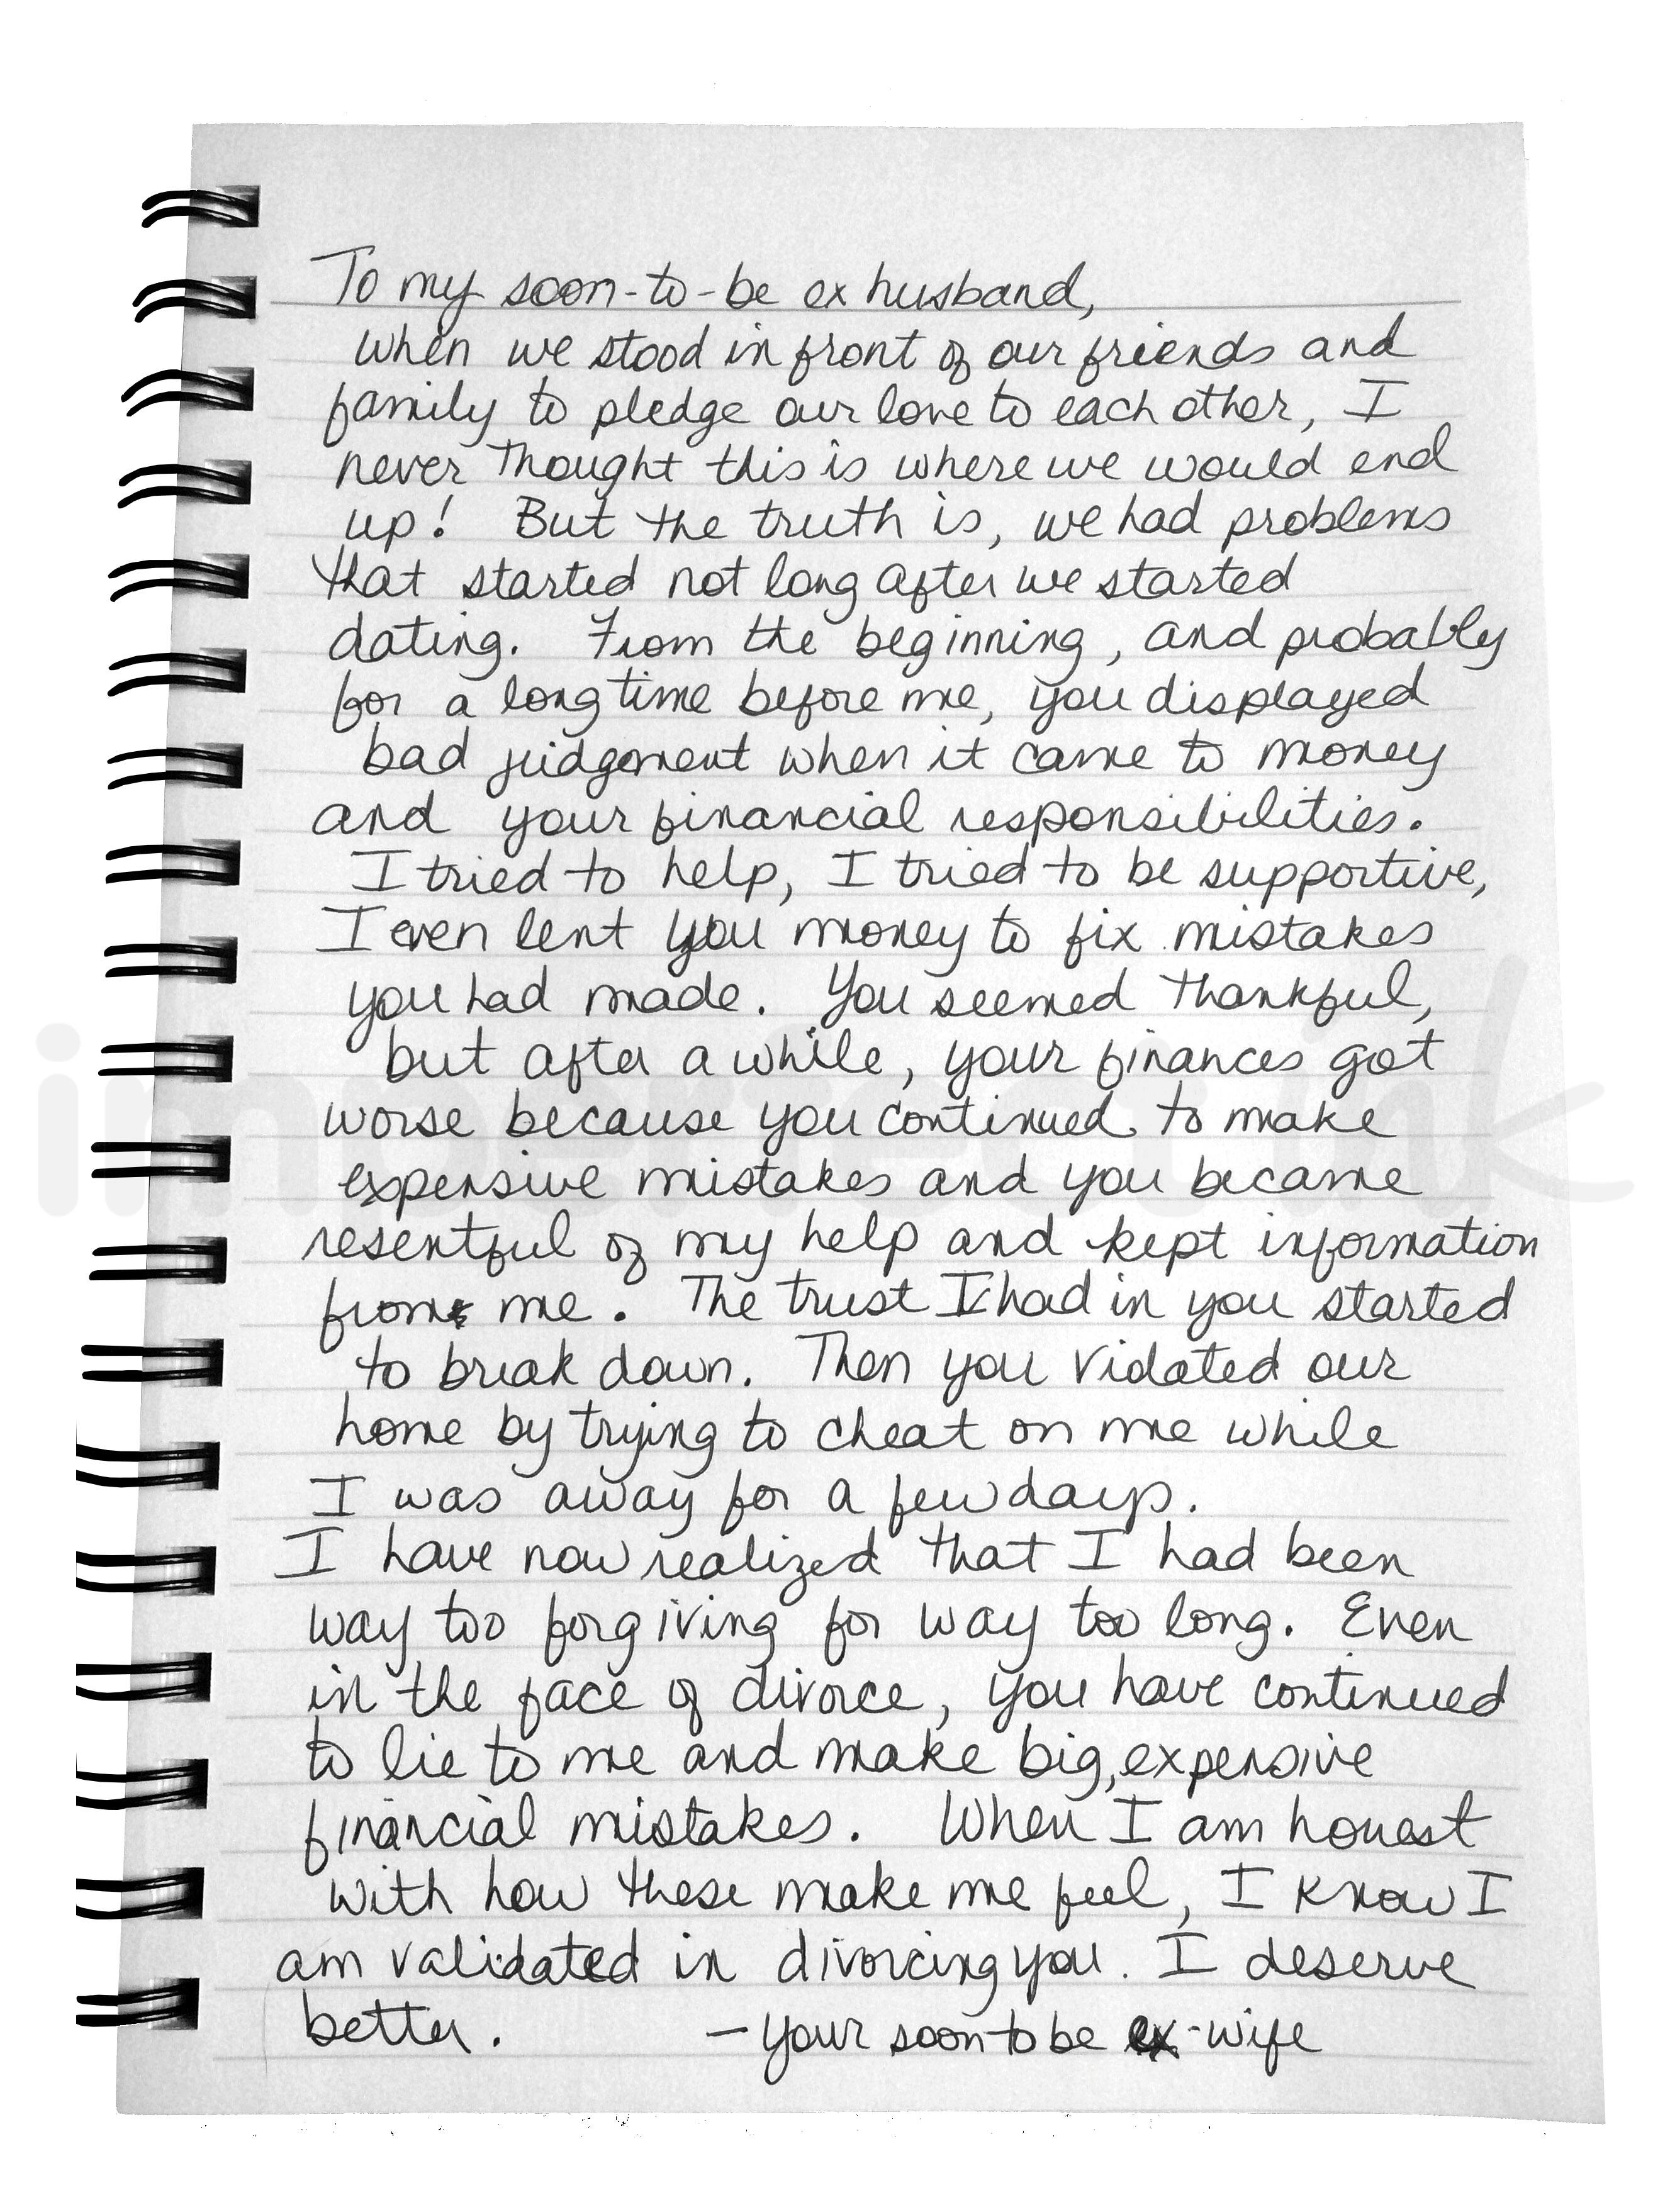 To my soon-to-be ex husband,
When we stood in front of our friends and
family to pledge our love to each other, I
never thought this is where we would end
up! But the truth is, we had problems
that started not long after we started
dating. From the beginning, and probably
for a long time before me, you displayed
bad judgement when it came to money
and your financial responsibilities.
I tried to help, I tried to be supportive,
I even lent you money to fix mistakes
you had made. You seemed thankful,
but after a while, your finances got
worse because you continued to make
expensive mistakes and you became
resentful of my help and kept information
from me. The trust I had in you started
to break down. Then you violated our
home by trying to cheat on me while
I was away for a few days.
I have now realized that I had been
way too forgiving for way too long. Even
in the face of divorce, you have continued
to lie to me and make big, expensive
financial mistakes. When I am honest
with how these make me feel, I know I
am validated in divorcing you. I deserve
better. – your soon to be ex-wife
imperfect ink